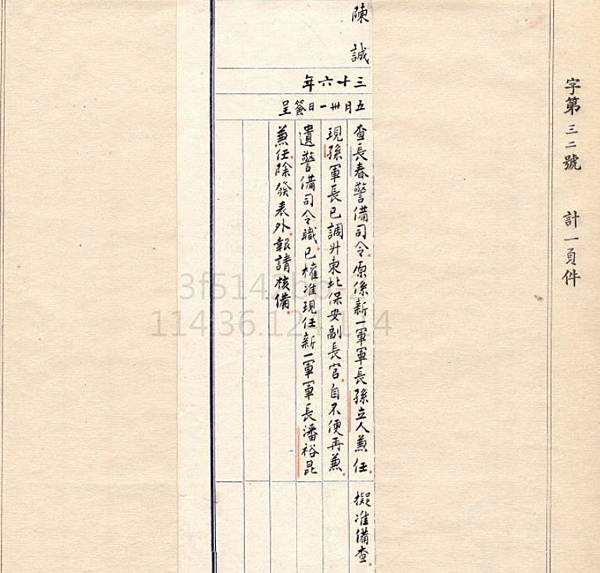 字第三二號　計一頁件
陳誠
三十六年
五月卅一日簽呈
查長春警備司令原係新一軍軍長孫立人兼任
現孫軍長已調升東北保安副長官自不便再兼
遺警備司令職已權准現任新一軍軍長潘裕昆
兼任除發表外報請核備
擬准備查